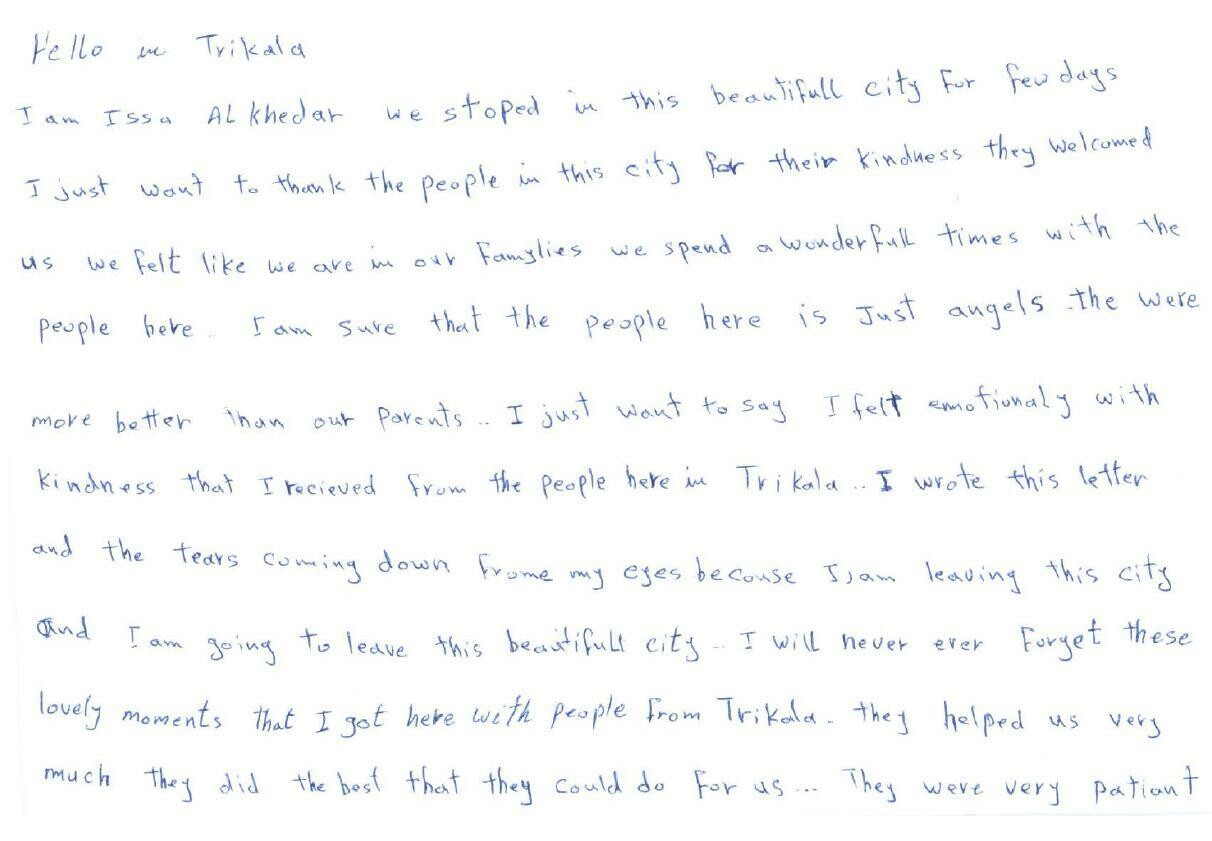 Hello in Trikala
I am Issa AL khedar we stoped in this beautifull city for few days
I just want to thank the people in this city for their kindness they welcomed
us we felt like we are in our Famylies we spend a wonderfull times with the
people here .. I am sure that the people here is Just angels .the were
more better than our parents .. I just want to say I felt emotionaly with
kindness that I recieved from the people here in Trikala .. I wrote this letter
and the tears coming down frome my eyes becouse I am leaving this city
And I am going to leave this beautifull city .. I will never ever Forget these
lovely moments that I got here with people from Trikala . they helped us very
much they did the best that they could do for us ... They were very patiant